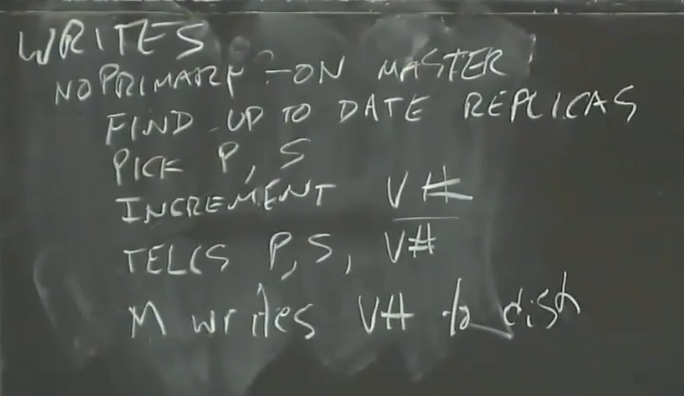 WRITES
NO PRIMARY - ON MASTER
FIND UP TO DATE REPLICAS
PICK P, S
INCREMENT V#
TELLS P, S, V#
M writes V# to disk